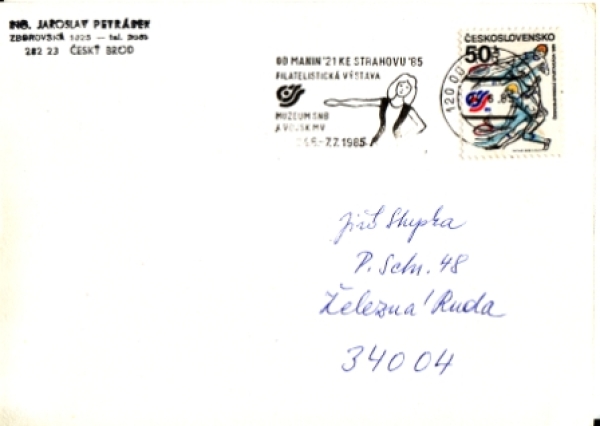 ING. JAROSLAV PETRÁSEK
ZBOROVSKÁ 1025 - tel. 
282 23 ČESKÝ BROD
OD MANIN '21 KE STRAHOVU '85
FILATELISTICKÁ VÝSTAVA
MUZEUM SNB
A VOJSK MV
-7.7.1985
120 00
ČESKOSLOVENSKO
50
Jiří Stupka
P. Schr. 48
Železná Ruda
340 04